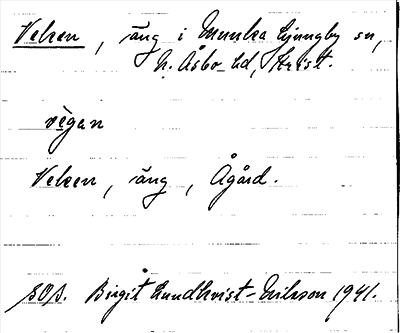 Veken, äng i Munka Ljungby sn,
N. Åsbo hd, Krist.
vẹ̀gan
Veken, äng, Ågård.
SOÅ. Birgit Lundkvist-Nilsson 1941.